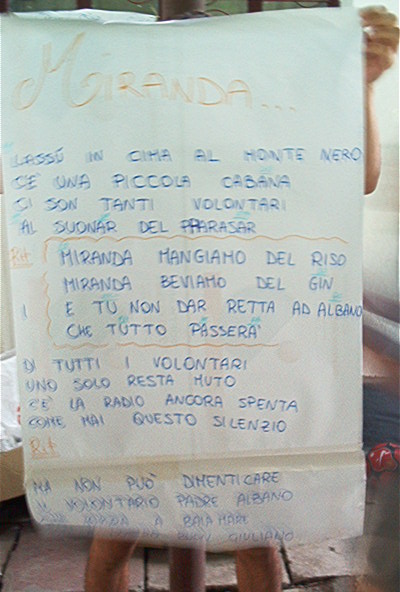 MIRANDA...
LASSÚ IN CIMA AL MONTE NERO
C'È UNA PICCOLA CABANA
CI SON TANTI VOLONTARI
AL SUONAR DEL PARASAR
Rit MIRANDA MANGIAMO DEL RISO
MIRANDA BEVIAMO DEL GIN
E TU NON DAR RETTA AD ALBANO
CHE TUTTO PASSERÀ
DI TUTTI I VOLONTARI
UNO SOLO RESTA MUTO
C'È LA RADIO ANCORA SPENTA
COME MAI QUESTO SILENZIO
Rit
MA NON PUÒ DIMENTICARE
IL VOLONTARIO PADRE ALBANO
A BAIA MARE
GIULIANO